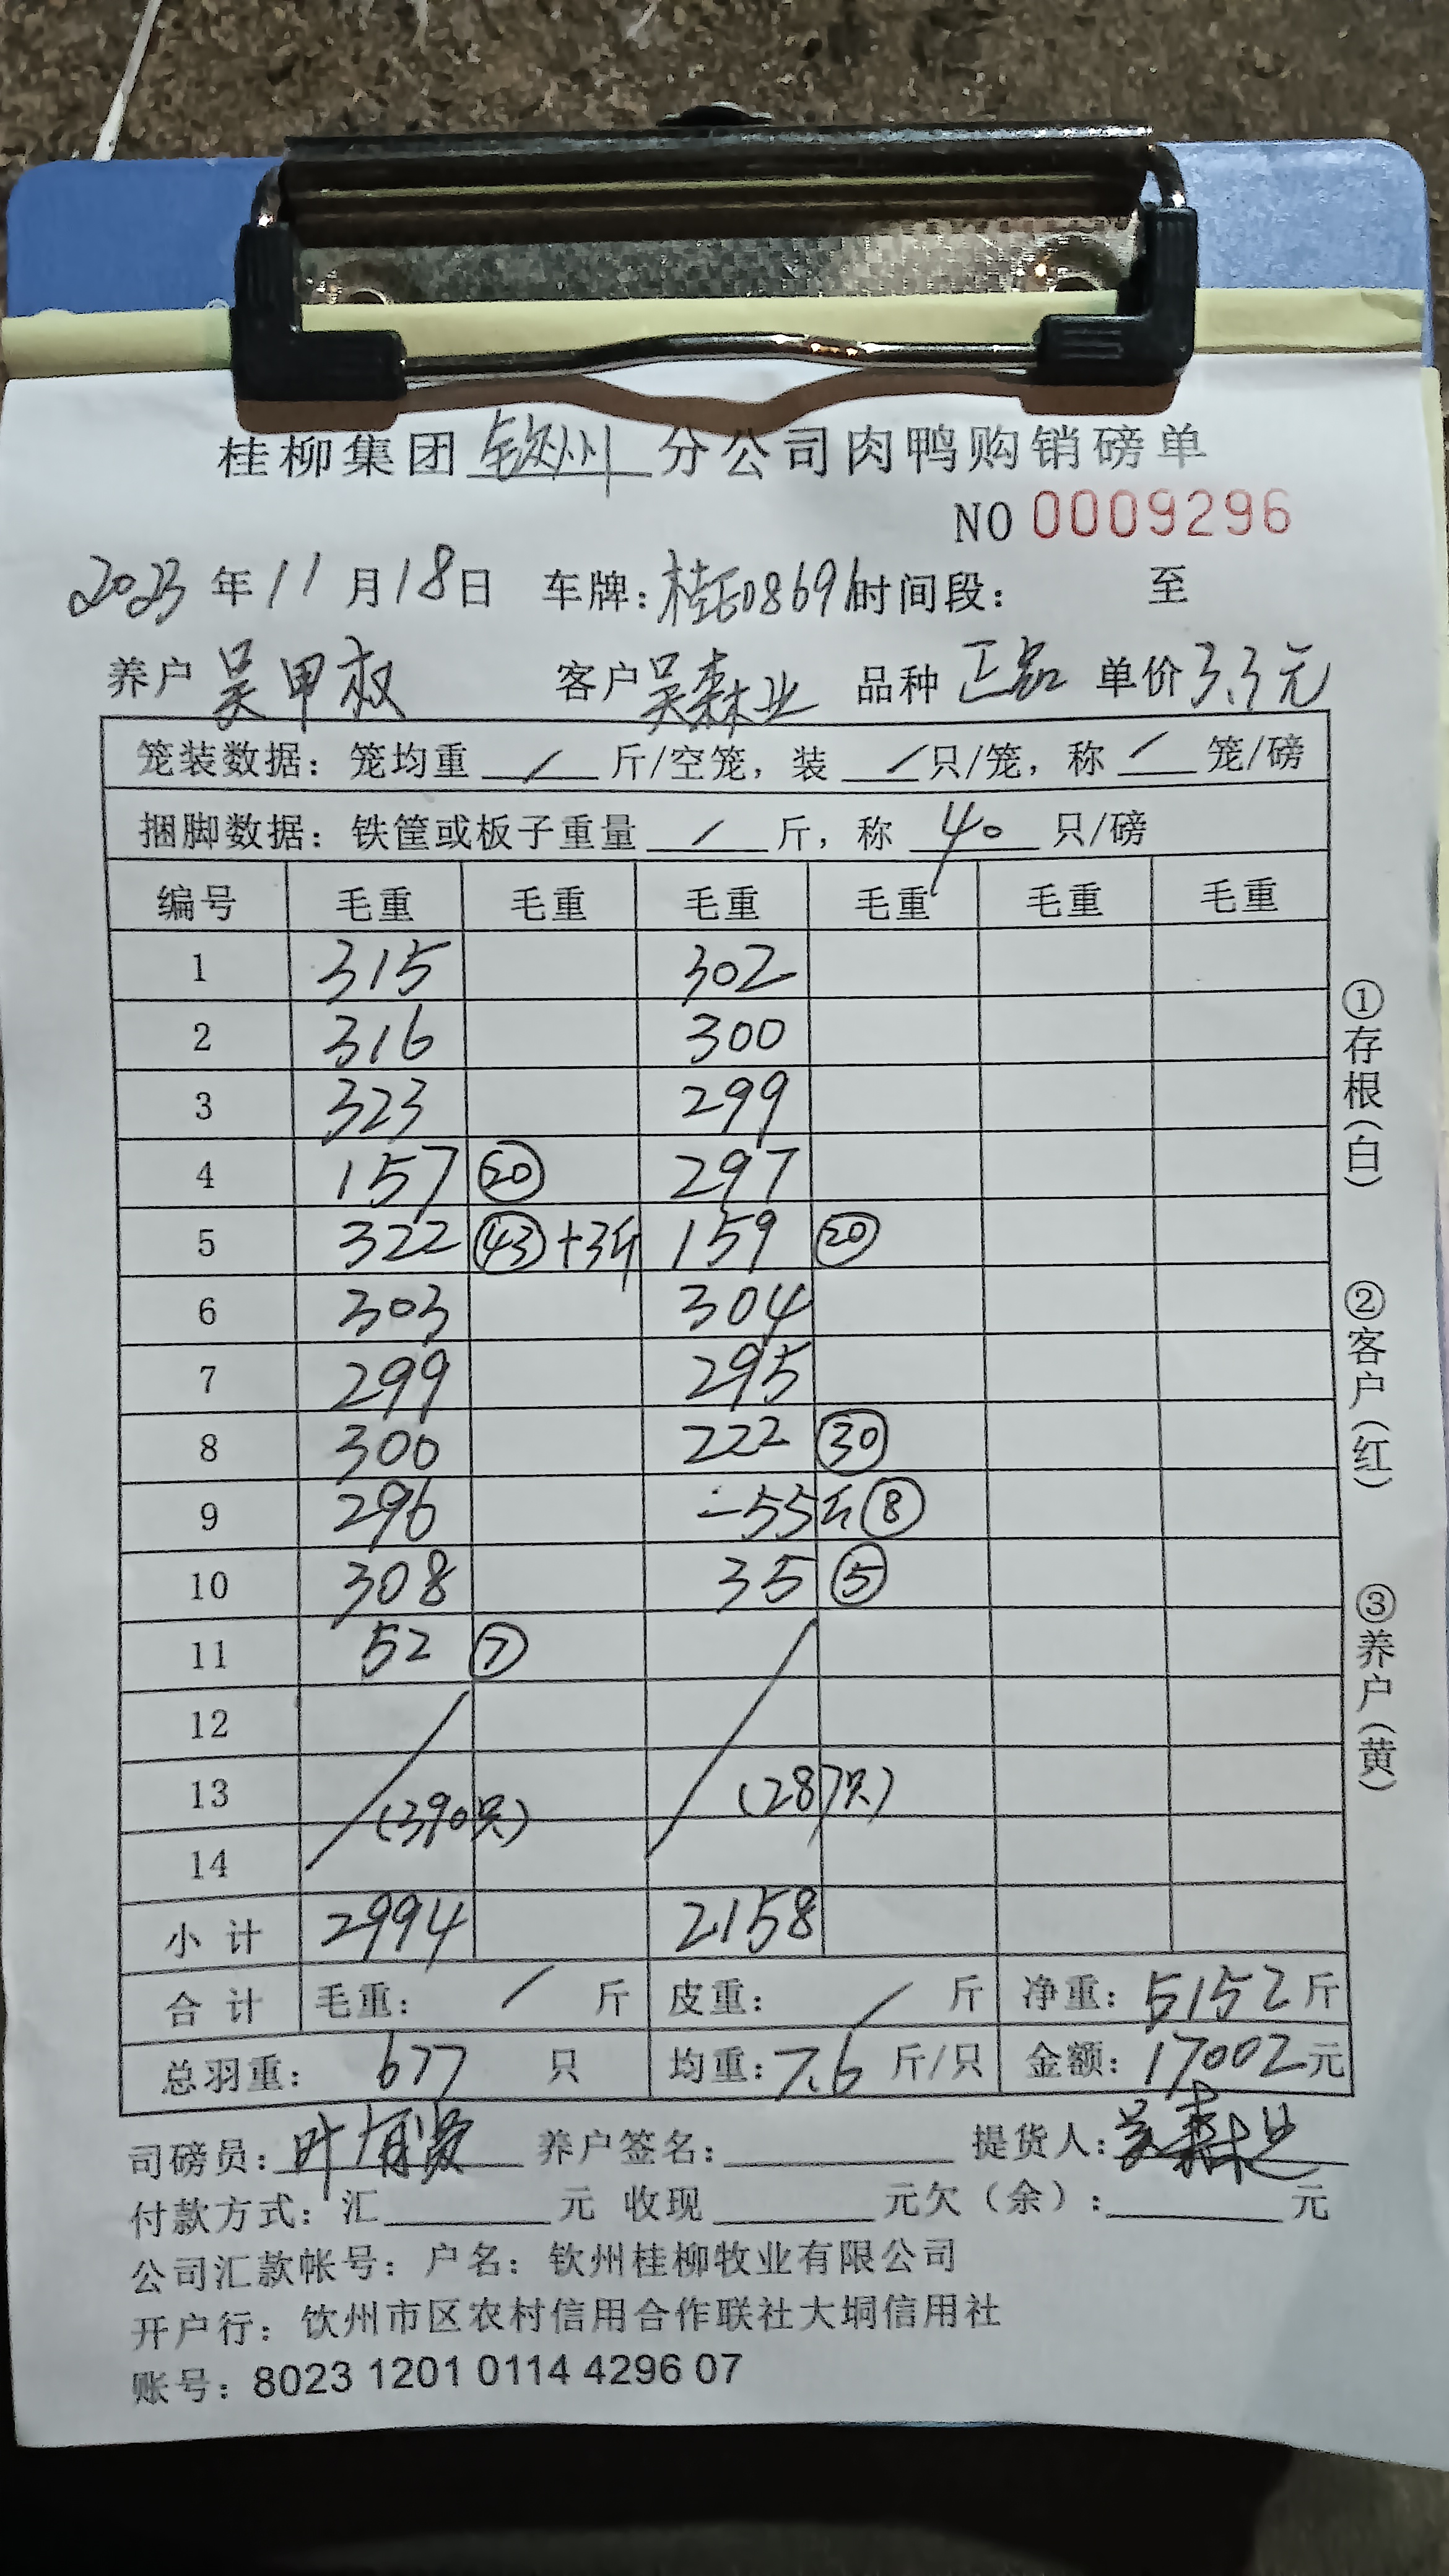 桂柳集团钦州分公司肉鸭购销磅单
NO 0009296
2023年11月18日 车牌:桂E08691时间段: 至
养户 吴甲权 客户吴森业 品种 正品 单价3.3元
笼装数据: 笼均重 / 斤/空笼, 装 / 只/笼, 称 / 笼/磅
捆脚数据: 铁筐或板子重量 / 斤, 称 40 只/磅
编号 毛重 毛重 毛重 毛重 毛重 毛重
1 315 302
2 316 300
3 323 299
4 157 ⑳ 297
5 322 ㊸+3斤 159 ⑳
6 303 304
7 299 295
8 300 222 ㉚
9 296 -55斤 ⑧
10 308 35 ⑤
11 52 ⑦
12
13 (390只) (287只)
14
小计 2994 2158
合计 毛重: / 斤 皮重: / 斤 净重: 5152斤
总羽重: 677 只 均重: 7.6 斤/只 金额: 17002元
司磅员: 叶有贤 养户签名: 提货人: 吴森业
付款方式: 汇 元 收现 元欠(余): 元
公司汇款帐号: 户名: 钦州桂柳牧业有限公司
开户行: 钦州市区农村信用合作联社大垌信用社
账号: 8023 1201 0114 4296 07
①存根(白)
②客户(红)
③养户(黄)